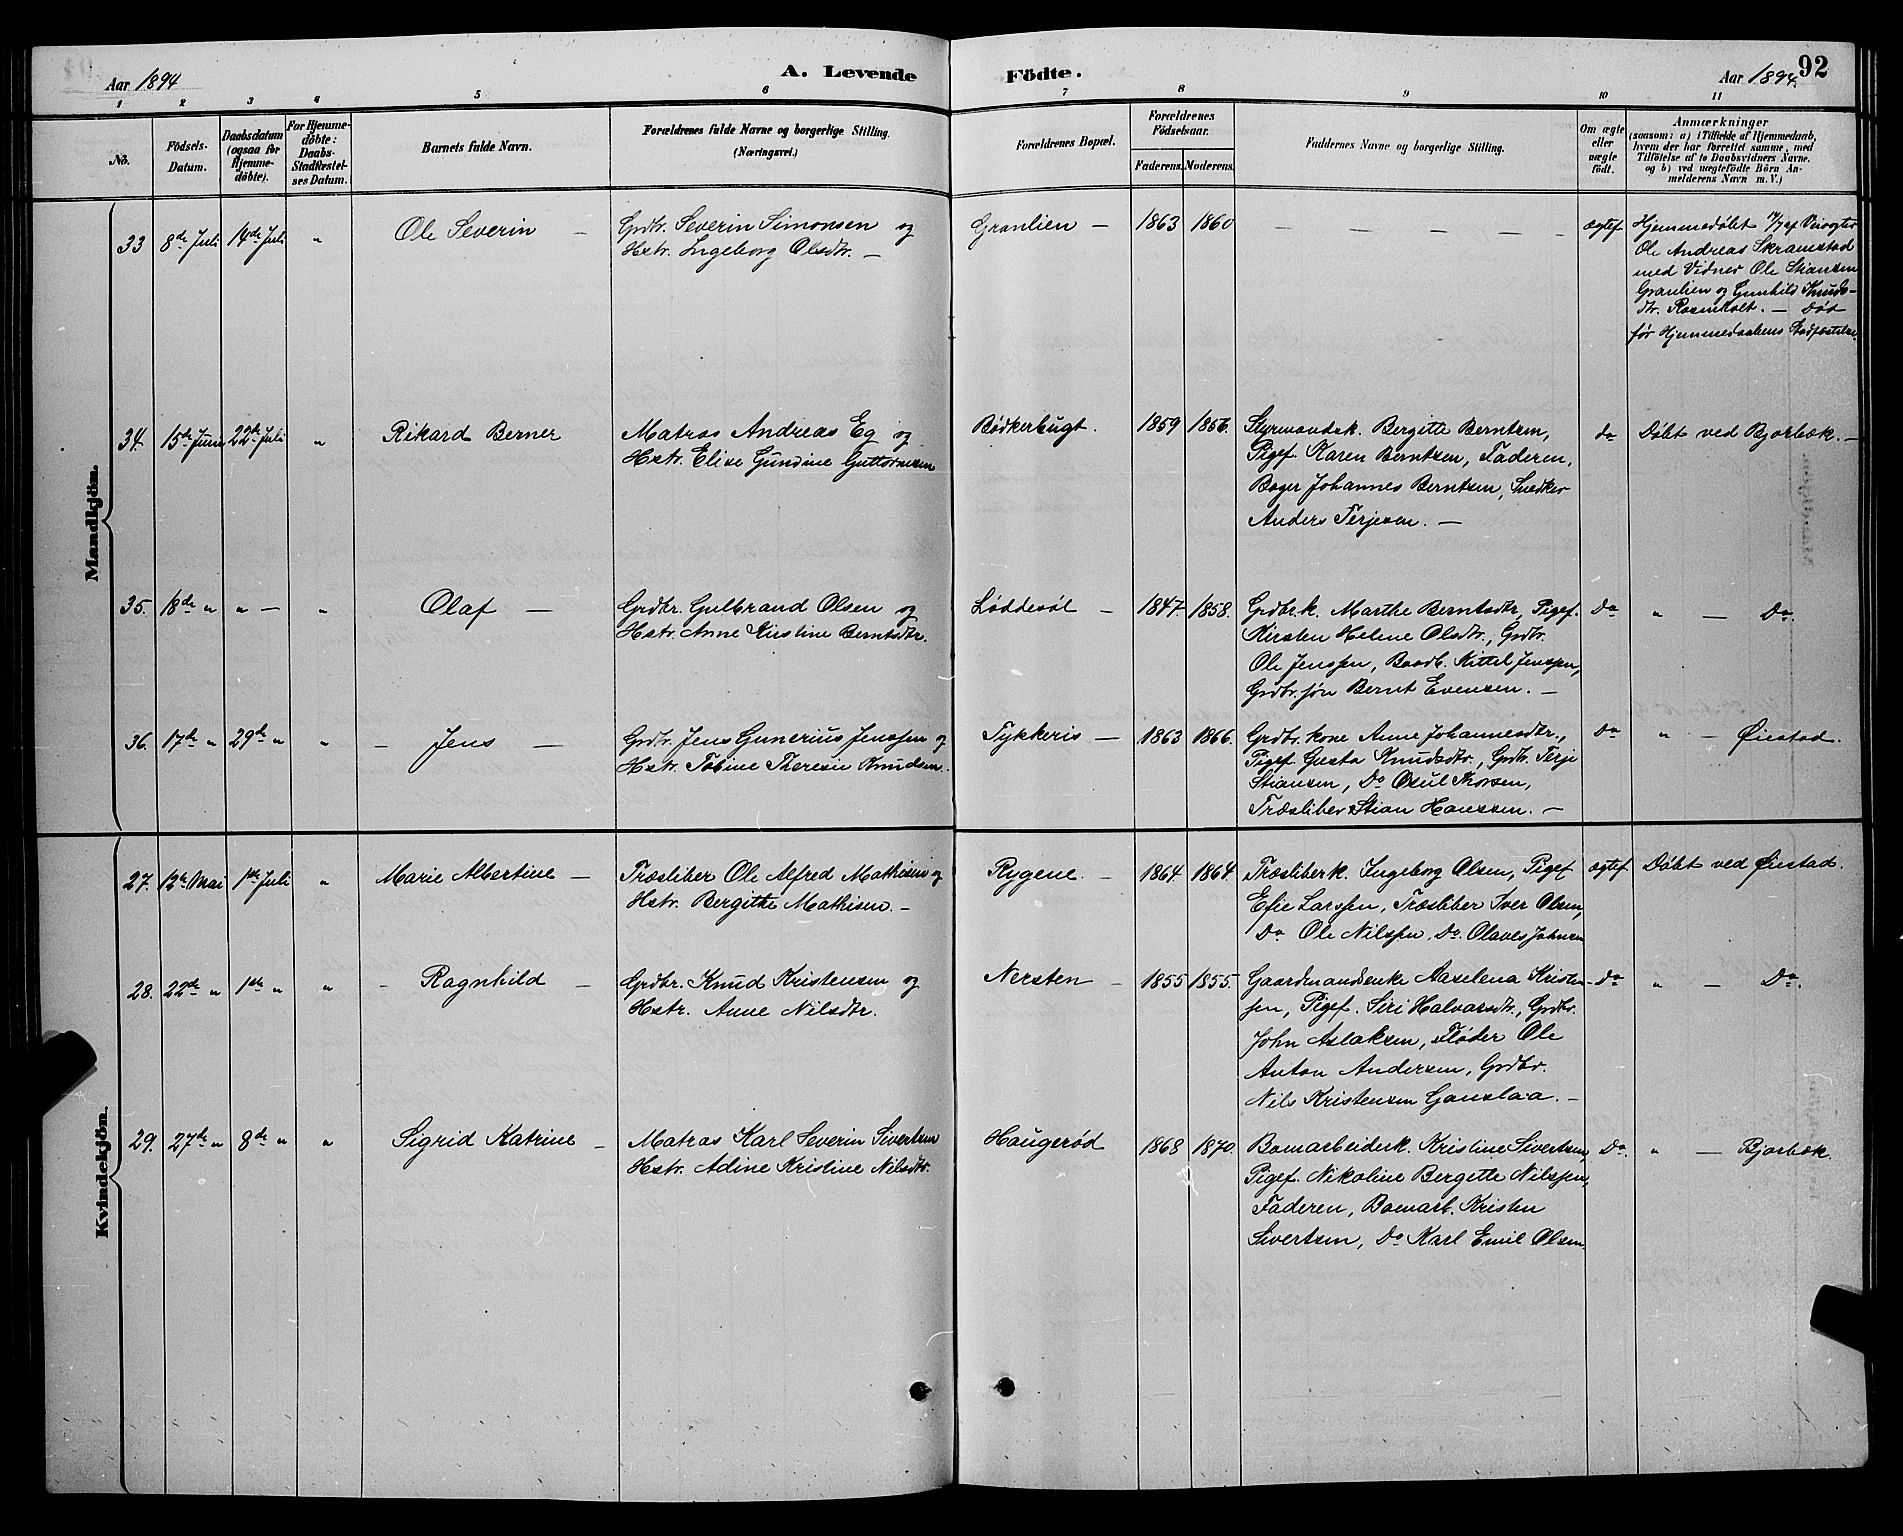 Aar 1894
A. Levende
Födte.
Aar 1894.
92
1 2 3 4 5 6 7 8 9 10 11
No.
Födsels-
Datum.
Daabsdatum
(ogsaa for
Hjemme-
döbte).
For Hjemme-
döbte:
Daabs-
Stadfæstel-
ses Datum.
Barnets fulde Navn.
Forældrenes fulde Navne og borgerlige Stilling.
(Næringsvei.)
Forældrenes Bopæl.
Forældrenes
Födselsaar.
Faderens.
Moderens.
Faddernes Navne og borgerlige Stilling.
Om ægte
eller
uægte
födt.
Anmærkninger
(saasom: a) i Tilfælde af Hjemmedaab,
hvem der har forrettet samme, med
Tilföielse af to Daabsvidners Navne.
og b) ved uægtefödte Börn An-
melderens Navn m. V.)
Mandkjön.
33 8de Juli 14de Juli „ Ole Severin —
Grdbr. Severin Simonsen og
Hstr. Ingeborg Olsdtr. —
Granlien — 1863 1860 — — — — — — ægtef.
Hjemmedøbt af
Ole Andreas Skramstad
med Vidner Ole Stiansen
Granlien og Gunhild Knuds-
dtr. Rosenholt. — Død
før Hjemmedaabens Stadfæstelse.
34. 15de Juni 22de Juli „ Rikard Berner
Matros Andreas Eg og
Hstr. Elise Gundine Guttormsen
Bødkerbugt. 1859 1856.
Styrmandsk. Bergitte Berntsen,
Pigef. Karen Berntsen, Faderen,
Bager Johannes Berntsen, Snedker
Anders Terjesen. —
do Døbt ved Bjorbæk. —
35. 18de „ „ — „ Olaf —
Grdbr. Gulbrand Olsen og
Hstr. Anne Kirstine Berntsdtr.
Løddesøl — 1847. 1858.
Grdbr.k. Marthe Berntsdtr., Pigef.
Kirsten Helene Olsdtr., Grdbr.
Ole Jenssen, Baadb. Kittel Jenssen,
Grdbr.søn Bernt Evensen. —
Do „ — Do.
36. 17de „ 29de „ „ — Jens —
Grdbr. Jens Gunerius Jenssen og
Hstr. Tobine Theresie Knudsen.
Tykkeris — 1863 1866.
Grdbr. kone Anne Johannesdtr.,
Pigef. Gusta Knudsdtr., Grdbr. Terje
Stiansen, Do Osul Thorsen,
Træsliber Stian Hanssen. —
Do „ — Øiestad.
Kvindekjön.
27. 12te Mai 1ste Juli „ Marie Albertine —
Træsliber Ole Alfred Mathisen og
Hstr. Bergitte Mathisen. —
Rygene. — 1864. 1864.
Træsliberk. Ingeborg Olsen, Pigef.
Efie Larssen, Træsliber Iver Olsen,
Do Ole Nilssen, Do. Olaves Johnsen
ægtef. Døbt ved Øiestad.
28. 22de „ 1ste „ „ — Ragnhild —
Grdbr. Knud Kristensen og
Hstr. Anne Nilsdtr.
Nersten — 1855 1855.
Gaardmandsenke Aaselena Kristen-
sen, Pigef. Siri Halvorsdtr., Grdbr.
John Aslaksen, Fløder Ole
Anton Andersen, Grdbr.
Nils Kristensen Gauslaa. —
Do „ — Do.
29. 27de „ 8de „ „ Sigrid Katrine —
Matros Karl Severin Sivertsen
Hstr. Adine Kristine Nilsdtr.
Haugerød 1868 1870.
Bomarbeiderk. Kristine Sivertsen,
Pigef. Nikoline Bergitte Nilssen,
Faderen, Bomarb. Kristen
Sivertsen, Do Karl Emil Olsen.
Do. „ — Bjorbæk.